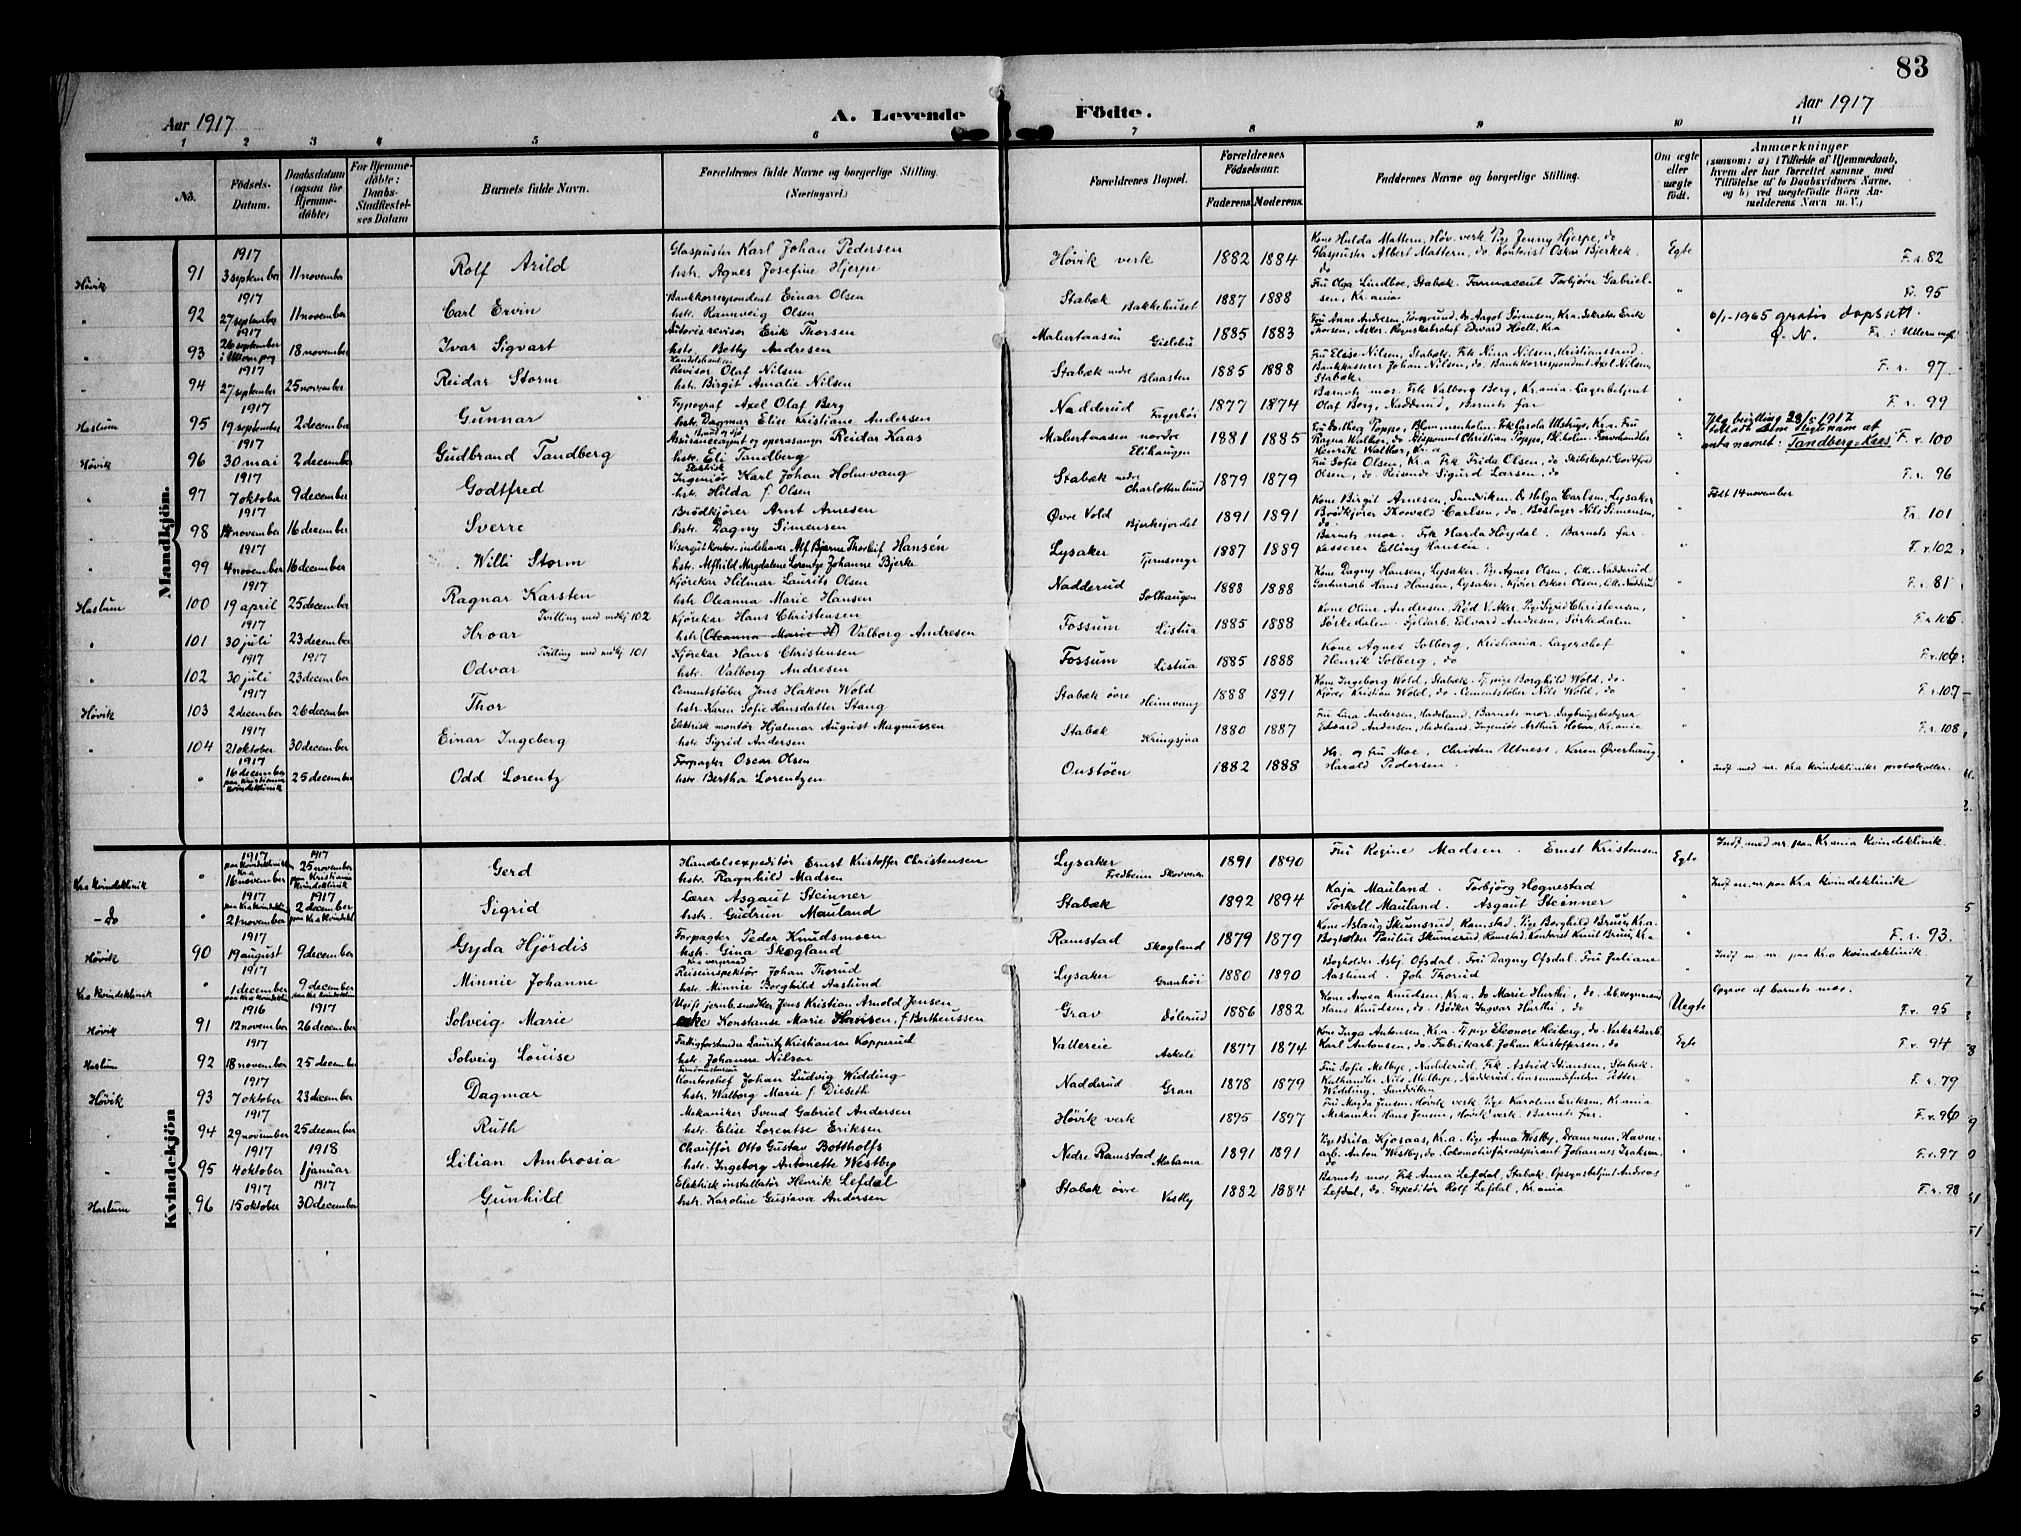 83
Aar 1917 A. Levende Födte. Aar 1917
1 2 3 4 5 6 7 8 9 10 11
No. Födsels-Datum. Daabsdatum (ogsaa for Hjemme-döbte) For Hjemme-döbte: Daabs-Stadfæstel-ses Datum Barnets fulde Navn. Forældrenes fulde Navne og borgerlige Stilling. (Næringsvei.) Forældrenes Bopæl. Forældrenes Födselsaar. Faderens. Moderens. Faddernes Navne og borgerlige Stilling. Om ægte eller uægte födt. Anmærkninger (saasom: a) i Tilfælde af Hjemmedaab, hvem der har forrettet samme med Tilföielse af to Daabsvidners Navne, og b) ved uægtefödte Börn An-melderens Navn m. V.)
Mandkjön.
Høvik 91 1917 3 september 11 november Rolf Arild Glaspuster Karl Johan Pedersen hstr. Agnes Josefine Hjerpe Høvik verk 1882 1884 Kone Hulda Mattern, Høv. verk. Pige Jenny Hjerpe, do Glaspuster Albert Mattern, do. Kontorist Oskar Bjerkek. do Egte F. r. 82
" 92 1917 27 september 11 november Carl Ervin Bankkorrespondent Einar Olsen hstr. Rannveig Olsen Stabæk Bakkehuset 1887 1888 Fru Olga Lindboe, Stabæk. Farmaceut Torbjörn Gabriel-sen, Kr.ania " Fr. 95
" 93 1917 26 september i Ullern prg 18 november Ivar Sigvart Autoris revisor Erik Thorsen hstr. Betty Andresen Malurtaasen 1885 1883 Fru Anne Andresen, Thorsen, Asker. Edvard Hoell, Kr.a " 6/1-1965 gratis dopsatt Ø. N. Fr. i Ullern
" 94 1917 27 september 25 november Reidar Storm Revisor Olaf Nilsen hstr. Birgit Amalie Nilsen Stabæk nedre Blaasten 1885 1888 Fru Elise Nilsen, Stabæk. Frk Nina Nilsen, Kristianssand. Bankkasserer Johan Nilsen, do. Bankkorrespondent Axel Nilsen Stabæk. " F. r. 97
Haslum 95 1917 19 september 2 december Gunnar Typograf Axel Olaf Berg hstr. Dagmar Elise Kristiane Andersen Nadderud Fagerhöi 1877 1874 Barnets mor. Frk Valborg Berg, Kr.ania. Lagerbetjent Olaf Berg, Nadderud, Barnets far " F. r. 99
Høvik 96 1917 30 mai 2 december Gudbrand Tandberg Assuranceagent og operasanger Reidar Kaas hstr. Eli Tandberg Malurtaasen nordre Elihaugen 1881 1885 Poppe, Blommenholm. Ragna Walker, do. Disponent Christian Poppe, Bl.holm. Henrik Walker, Kr.a " 1917 anta navnet: Tandberg-Kaas F. r. 100
" 97 1917 7 oktober 9 december Godtfred Elektrisk Ingeniør Karl Johan Holmvang hstr. Hilda f. Olsen Stabæk nedre Charlottenlund 1879 1879 Fru Sofie Olsen, Kr.a Frk Frida Olsen, do Skibskapt. Godtfred Olsen, do. Reisende Sigurd Larsen, do " F. r. 96
" 98 1917 14 november 16 december Sverre Brödkjører Arnt Arnesen hstr. Dagny Simensen Øvre Vold Bjerkejordet 1891 1891 Kone Birgit Arnesen, Sandviken. Do Helga Carlsen, Lysaker Brödkjører Thorvald Carlsen, do. Nils Simensen, do. " Født 14 november Fr. 101
" 99 1917 4 november 16 december Willi Storm Visergutkontor-indehaver Alf Bjarne Thorleif Hansén hstr. Alfhild Magdalene Lorentze Johanne Bjerke Lysaker Fjernsmyr 1887 1889 Barnets mor. Frk Harda Höydal. Barnets far. Kasserer Elling Hansen. " F. r. 102
Haslum 100 1917 19 april 25 december Ragnar Karsten Kjörekar Hilmar Laurits Olsen hstr Oleanna Marie Hansen Nadderud Solhaugen 1888 1888 Kone Dagny Hansen, Lysaker. Pi. Agnes Olsen, lille Nadderud Hans Hansen, Lysaker. Kjører Oskar Olsen, lille Nadderud " F. r. 81
" 101 1917 30 juli 23 december Hroar Tvilling med mdkj 102 Kjörekar Hans Christensen hstr (Oleanna Marie H) Valborg Andresen Fossum Listua 1885 1888 Kone Oline Andresen, Röd V. Aker. Pige Sigrid Christensen, Sørkedalen. Edvard Andresen, Sørkedalen " F. r. 105
" 102 1917 30 juli 1917 23 december Odvar Tvilling med mdkj 101 Kjörekar Hans Christensen hstr. Valborg Andresen Fossum Listua 1885 1888 Kone Agnes Solberg, Kristiania. Lagerchef Henrik Solberg, do " F. r. 106
Høvik 103 1917 2 december 26 december Thor Cementstøber Jens Hakon Wold hstr. Karen Sofie Hansdatter Stang Stabæk øvre Heimvang 1888 1891 Kone Ingeborg Wold, Stabæk. Tj.pige Borghild Wold, do. Kjører Kristian Wold, do. Cementstøber Nils Wold, do " F. r. 107
" 104 1917 21 oktober 30 december Einar Ingeberg Elektrisk montör Hjalmar August Magnussen hstr Sigrid Andersen Stabæk Kringsjaa 1880 1887 Fru Lina Andersen, Hadeland, Barnets mor. Edvard Andersen, Hadeland. Ingeniør Arthur Holm, Kr.ania " F. r. 108
" 1917 16 december paa Kristiania Kvindeklinik 25 december Odd Lorentz Forpagter Oscar Olsen hstr. Bertha Lorentzen Oustöen 1882 1888 Hr. og fru Moe, Christen Utness, Karen Øverhaug, Harald Pedersen. Indf med nr. Kr.a Kvindekliniks protokoller.
Kvindekjön
Kr.a Kvindeklinik " 1917 paa Kvindeklinikken Kr.a 16 november 1917 25 november paa Kristiania Kvindeklinik Gerd Handelsexpeditör Ernst Kristoffer Christensen hstr. Ragnhild Madsen Lysaker Fredheim 1891 1890 Fru Regine Madsen. Ernst Kristensen Egte Indf. med nr. paa Kr.ania Kvindeklinik.
- Do " 1917 paa Kr.a Kvindeklinik 21 november 1917 2 december paa Kr.a Kvindekl. Sigrid Lærer Asgaut Steinner hstr. Gudrun Mauland Stabæk 1892 1894 Kaja Mauland. Torbjörg Hognestad Torkell Mauland. Asgaut Steinner " Indf m. nr. paa Kr.a Kvindeklinik
Høvik 90 1917 19 august 9 december Gyda Hjördis Forpagter Peder Knudsmoen hstr. Gina Skogland Ramstad Skogland 1879 1879 Kone Aslaug Skumsrud, Ramstad. Pige Borghild Bruu, Kr.a. Bogholder Paulus Skumsrud, Ramstad. Kontorist Knut Bruu, Kr.a " F. r. 93.
Kr.a Kvindeklinik " 1917 1 december paa Kr.a Kvindeklinik 9 december paa Kr.a Kvindeklinik Minnie Johanne Reiseinspektör Johan Thorud hstr. Minnie Borghild Aaslund Lysaker Granhöi 1880 1890 Bogholder Asbj. Ofsdal. Fru Dagny Ofsdal. Fru Juliane Aaslund. Joh. Thorud " Indf m. nr. paa Kr.a Kvindeklinik.
Høvik 91 1916 12 november 1917 26 december Solveig Marie Ugift jernb.snedker Jens Kristian Arnold Jensen enke Konstanse Marie Hansen, f. Bertheussen Grav Dölerud 1886 1882 Kone Anna Knudsen, Kr.a. do Marie Hurthi, do. Hans Knudsen, do. Bödker Ingvar Hurthi, do Uegte Opgave af barnets mor. F. r. 95
Haslum 92 1917 18 november 25 december Solveig Louise Fattigforstander Lauritz Kristiansen Kopperud hstr. Johanne Nilsen Vallereie Askeli 1877 1874 Kone Inga Antonsen, Kr.a. Tj.pige Eleonore Heiberg, do. Verkstedarb. Karl Antonsen, do. Fabrikarb. Johan Kristoffersen, do Egte F. r. 94
Høvik 93 1917 7 oktober 23 december Dagmar Kontorchef Johan Ludvig Widding hstr. Walborg Marie f. Dieseth Nadderud Gran 1878 1879 Fru Sofie Melbye, Nadderud, Frk Astrid Hansen, Stabæk. Kulhandler Nils Melbye, Nadderud. Petter Widding, Sandviken " F. r. 79
" 94 1917 29 november 25 december Ruth Mekaniker Svend Gabriel Andersen hstr. Elise Lorentse Eriksen Høvik verk 1895 1897 Fru Magda Jensen, Høvik verk. Pige Karoline Eriksen, Kr.ania Mekaniker Hans Jensen, Høvik verk. Barnets far. " F. r. 96
" 95 1917 4 oktober 1918 1 januar Lilian Ambrosia Chaufför Otto Gustav Bottholfs hstr. Ingeborg Antonette Westby Nedre Ramstad Alabama 1891 1891 Pige Brita Kjosaas, Kr.a. Pige Anna Westby, Drammen. Havne-arb. Anton Westby, do. Lokomotivføreraspirant Johannes Isaksen. do " F. r. 97
Haslum 96 1917 15 oktober 1917 30 december Gunhild Elektrisk installatör Henrik Lefdal hstr. Karoline Gustava Andersen Stabæk øvre Vestby 1882 1884 Barnets mor, Frk Anna Lefdal, Stabæk. Opsynsbetjent Andreas Lefdal, do. Expeditör Rolf Lefdal, Kr.ania " F. r. 98